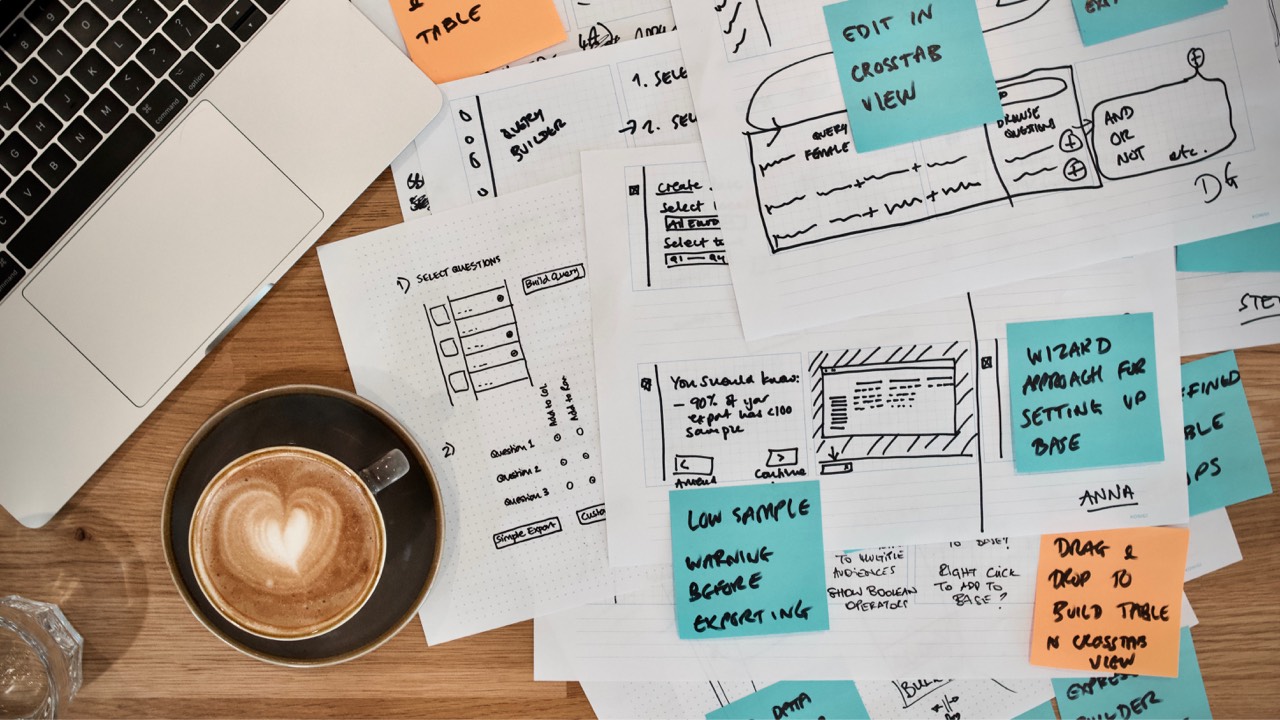 command
option
TABLE
QUERY
BUILDER
1. SELE
2. SEL
EDIT IN
CROSSTAB
VIEW
QUERY
FEMALE
BROWSE
QUESTIONS
AND
OR
NOT etc.
DG
Create
Select
Select
Q1 — Q4
1) SELECT QUESTIONS
Build Query
Add to Col
Add to Row
2)
Question 1
Question 2
Question 3
Simple Export
You should know:
- 90% of your
export has <100
sample
<
>
Amend
Continue
WIZARD
APPROACH FOR
SETTING UP
BASE
ANNA
LOW SAMPLE
WARNING
BEFORE
EXPORTING
TO MULTIPLE
AUDIENCES
SHOW BOOLEAN
OPERATORS
TO BASE?
RIGHT CLICK
TO ADD TO
BASE?
DRAG &
DROP TO
BUILD TABLE
IN CROSSTAB
VIEW
DATA